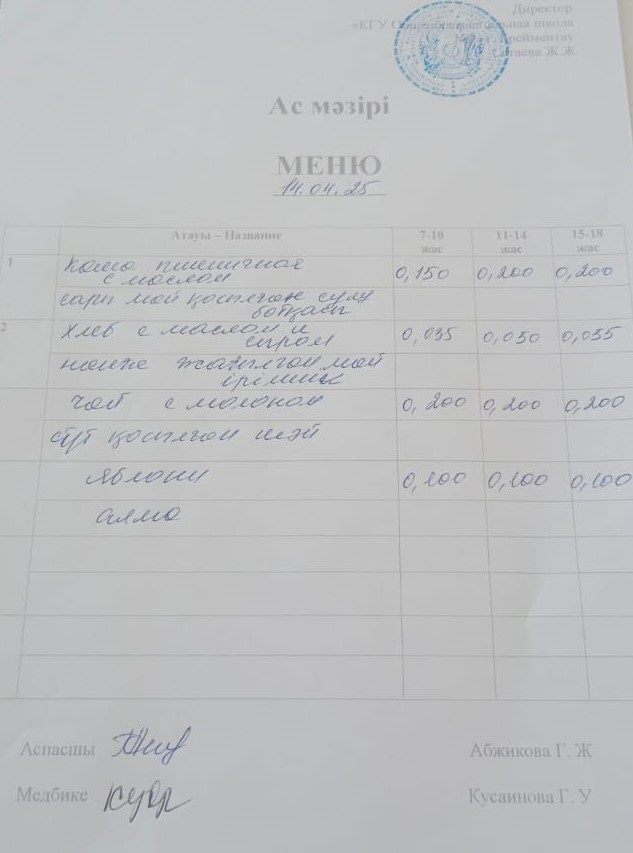 Директор
«КГУ Общеобразовательная школа
Ерейментау
Ж.Ж
Ас мәзірі
МЕНЮ
14.04.25
Атауы – Название 7-10 жас 11-14 жас 15-18 жас
1 Каша пшеничная с маслом 0,150 0,200 0,200
сары май қосылған сұлу ботқасы
2 Хлеб с маслом и сыром 0,035 0,050 0,055
нанға жағылған май ірімшік
Чай с молоком 0,200 0,200 0,200
сүт қосылған шәй
Яблоки 0,100 0,100 0,100
алма
Аспасшы Абжикова Г. Ж
Медбике Кусаинова Г. У